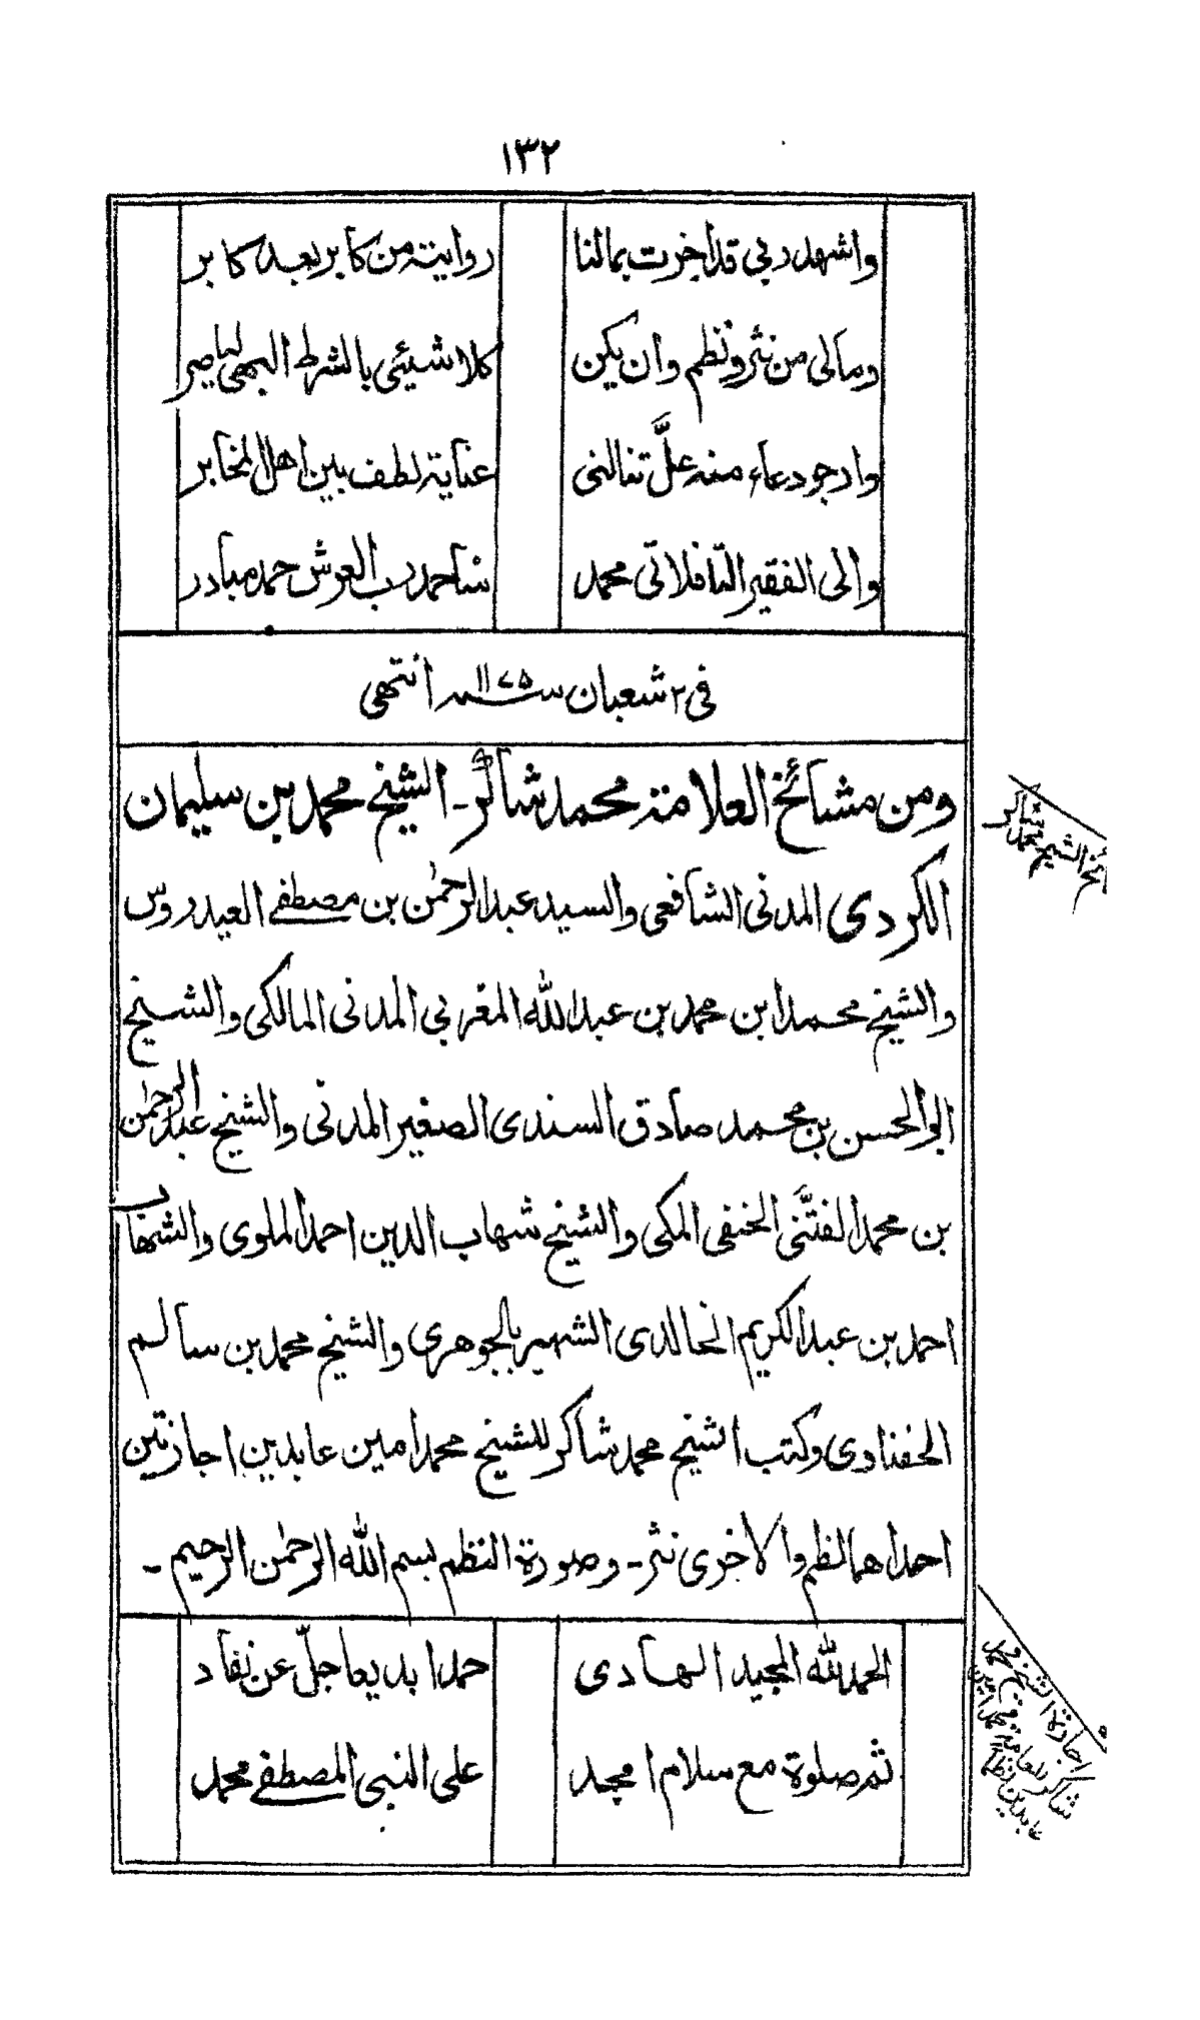 ١٣٢
واشهد ربي قد اجزت بمالنا روايته من كابر بعد كابر
ومالى من نثر ونظم وان يكن كلا شيئى بالشرط البهى لناصر
وارجو دعاء منه علَّ تنالنى عناية لطف بين اهل المخابر
والى الفقير التافلاتى محمد بناحمد رب العرش حمد مبادر
فى ٢ شعبان سنه ١١٧٥ انتهى
ومن مشائخ العلامة محمد شاكر - الشيخ محمد بن سليمان
الكردى المدنى الشافعى والسيد عبد الرحمٰن بن مصطفے العيدروس
والشيخ محمد ابن محمد بن عبد الله المغربي المدنى المالكى والشيخ
ابو الحسن بن محمد صادق السندى الصغير المدنى والشيخ عبد الرحمٰن
بن محمد الفتَّنى الحنفى المكى والشيخ شهاب الدين احمد الملوى والشهاب
احمد بن عبد الكريم الخالدى الشهير بالجوهرى والشيخ محمد بن سالم
الحفناوى وكتب الشيخ محمد شاكر للشيخ محمد امين عابدين اجازتين
احداهما نظم والاخرى نثر - وصورة النظم بسم الله الرحمٰن الرحيم -
الحمد لله المجيد الهادى حمدا بديعا جلّ عن نفاد
ثم صلوة مع سلام امجد على النبى المصطفے محمد
ئخ الشيخ محمد شاكر
اجازة الشيخ محمد
شاكر للعلامة محمد امين
عابدين نظما